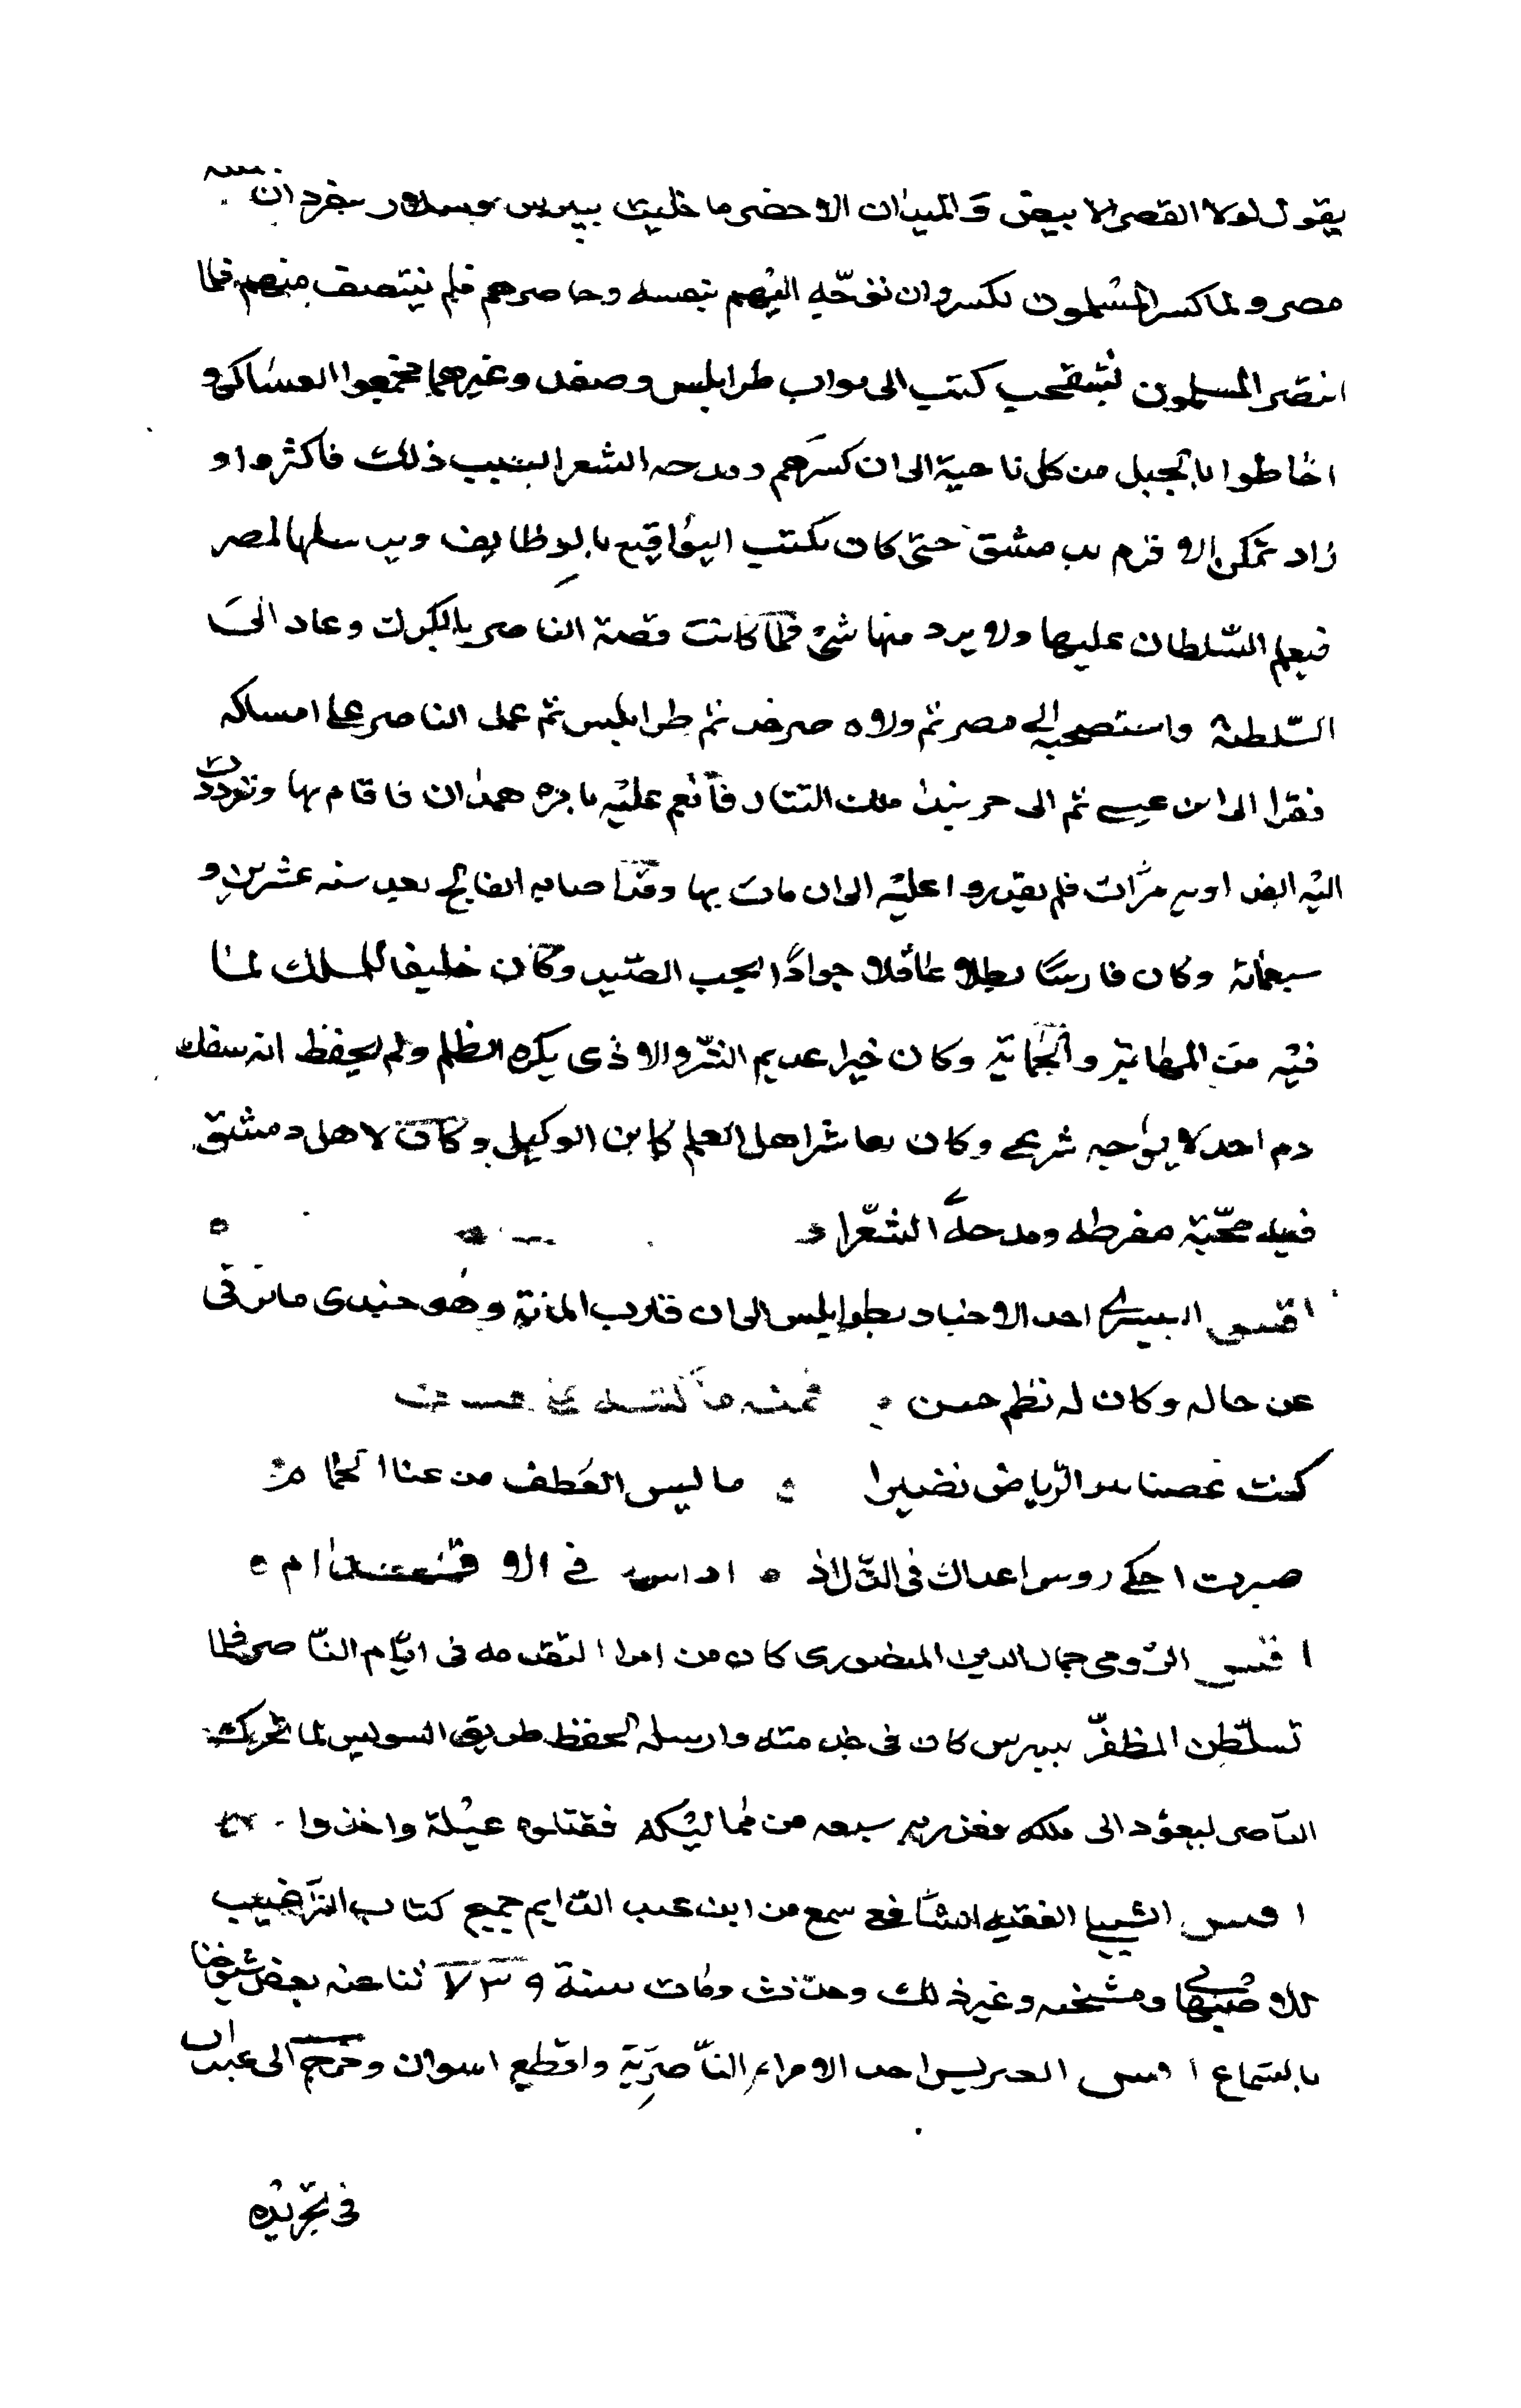 يقول لولا القصر الابيض والميدان الاخضر ما خليت بيبرس وسلار ينفردان
مصر ولما كسر المسلمون بكسروان توجه اليهم بنفسه وحاصرهم فلم ينتصف منهم فلما
انتصر المسلمون بشقحب كتب الى نواب طرابلس وصفد وغيرهما فجمعوا العساكر و
احاطوا بالجبل من كل ناحية الى ان كسرهم ومدحه الشعرا بسبب ذلك فاكثروا و
زاد تمكن الافرم بدمشق حتى كان يكتب التواقيع بالوظايف ويرسلها لمصر
فيعلم السلطان عليها ولا يرد منها شئ فلما كانت قصة الناصر بالكرك وعاد الى
السلطنة واستصحبه الى مصر ثم ولاه صرخد ثم طرابلس ثم عمل الناصر على امساكه
ففرا الى ابن عيسى ثم الى خربندا ملك التتار فأنعم عليه بامرة همدان فاقام بها وترددت
اليه الفداويه مرات فلم يقدروا عليه الى ان مات بها وقد اصابه الفالج بعد سنه عشرين و
سبعمائة وكان فارسا بطلا عاقلا جوادا يحب الصيد وكان خليقا للملك لما
فيه من المهابة والحماية وكان خيرا عديم الشر والاذى يكره الظلم ولم يحفظ انه سفك
دم احد لا بواجب شرعى وكان يعاشر اهل العلم كابن الوكيل وكان لاهل دمشق
فيه محبة مفرطه ومدحه الشعراء
اقش البيسرى احد الاجناد بطرابلس الى ان قارب المائة وهو جندى ما ترقى
عن حاله وكان له نظم حسن فمنه ما كتبه على
كنت غصنا بين الرياض نضيرا ما ليس العطف من غنا الحمام
صرت احكى روس اعداك فى الذل
اقش الرومى جمال الدين المنصورى كان من امرا التقدمه فى ايام الناصر فلما
تسلطن المظفر بيبرس كان فى خدمته وارسله لحفظ طريق السويس لما تحرك
الناصر ليعود الى ملكه فغدر به سبعه من مماليكه فقتلوه غيلة واخذوا
اقش الشبلى الفقيه الشافعى سمع من ابن عبد الدايم جميع كتاب الترغيب
للاصبهانى ومشيخته وغير ذلك وحدث ومات سنة ٧٣٩ ثنا عنه بعض شيوخنا
بالسماع اقش احد الامراء الناصرية واقطع اسوان وخرج الى عيذاب
فى تجريده